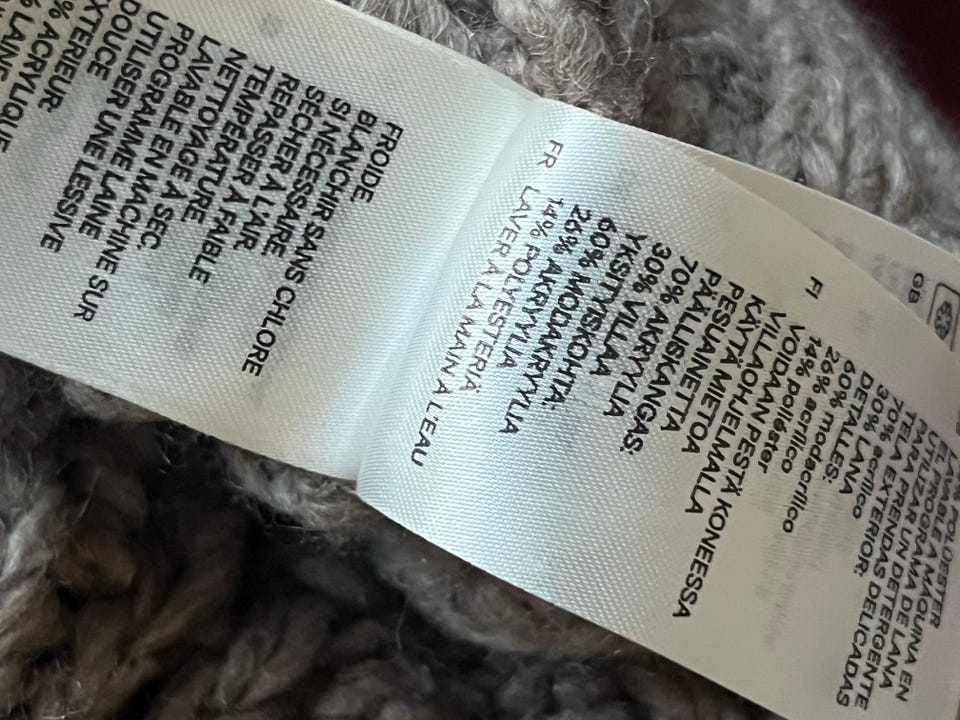 GB
POLIÉSTER
LAVABLE A MÁQUINA EN
EL PROGRAMA DE LANA
UTILIZAR UN DETERGENTE
PARA PRENDAS DELICADAS
TELA EXTERIOR:
70% acrílico
30% LANA
DETALLES:
60% modacrílico
26% acrílico
14% poliéster
FI VOIDAAN PESTÄ KONEESSA
VILLAOHJELMALLA
KÄYTÄ MIETOA
PESUAINETTA
PÄÄLLISKANGAS:
70% AKRYYLIA
30% VILLAA
YKSITYISKOHTA:
60% MODAKRYYLIA
26% AKRYYLIA
14% POLYESTERIÄ
FR LAVER A LA MAIN A L'EAU
FROIDE
BLANCHIR SANS CHLORE
SI NÉCESSAIRE
SÉCHER A L'AIR.
REPASSER À FAIBLE
TEMPÉRATURE
NETTOYAGE À SEC.
LAVABLE EN MACHINE SUR
PROGRAMME LAINE
UTILISER UNE LESSIVE
DOUCE
EXTERIEUR:
% ACRYLIQUE
% LAINE